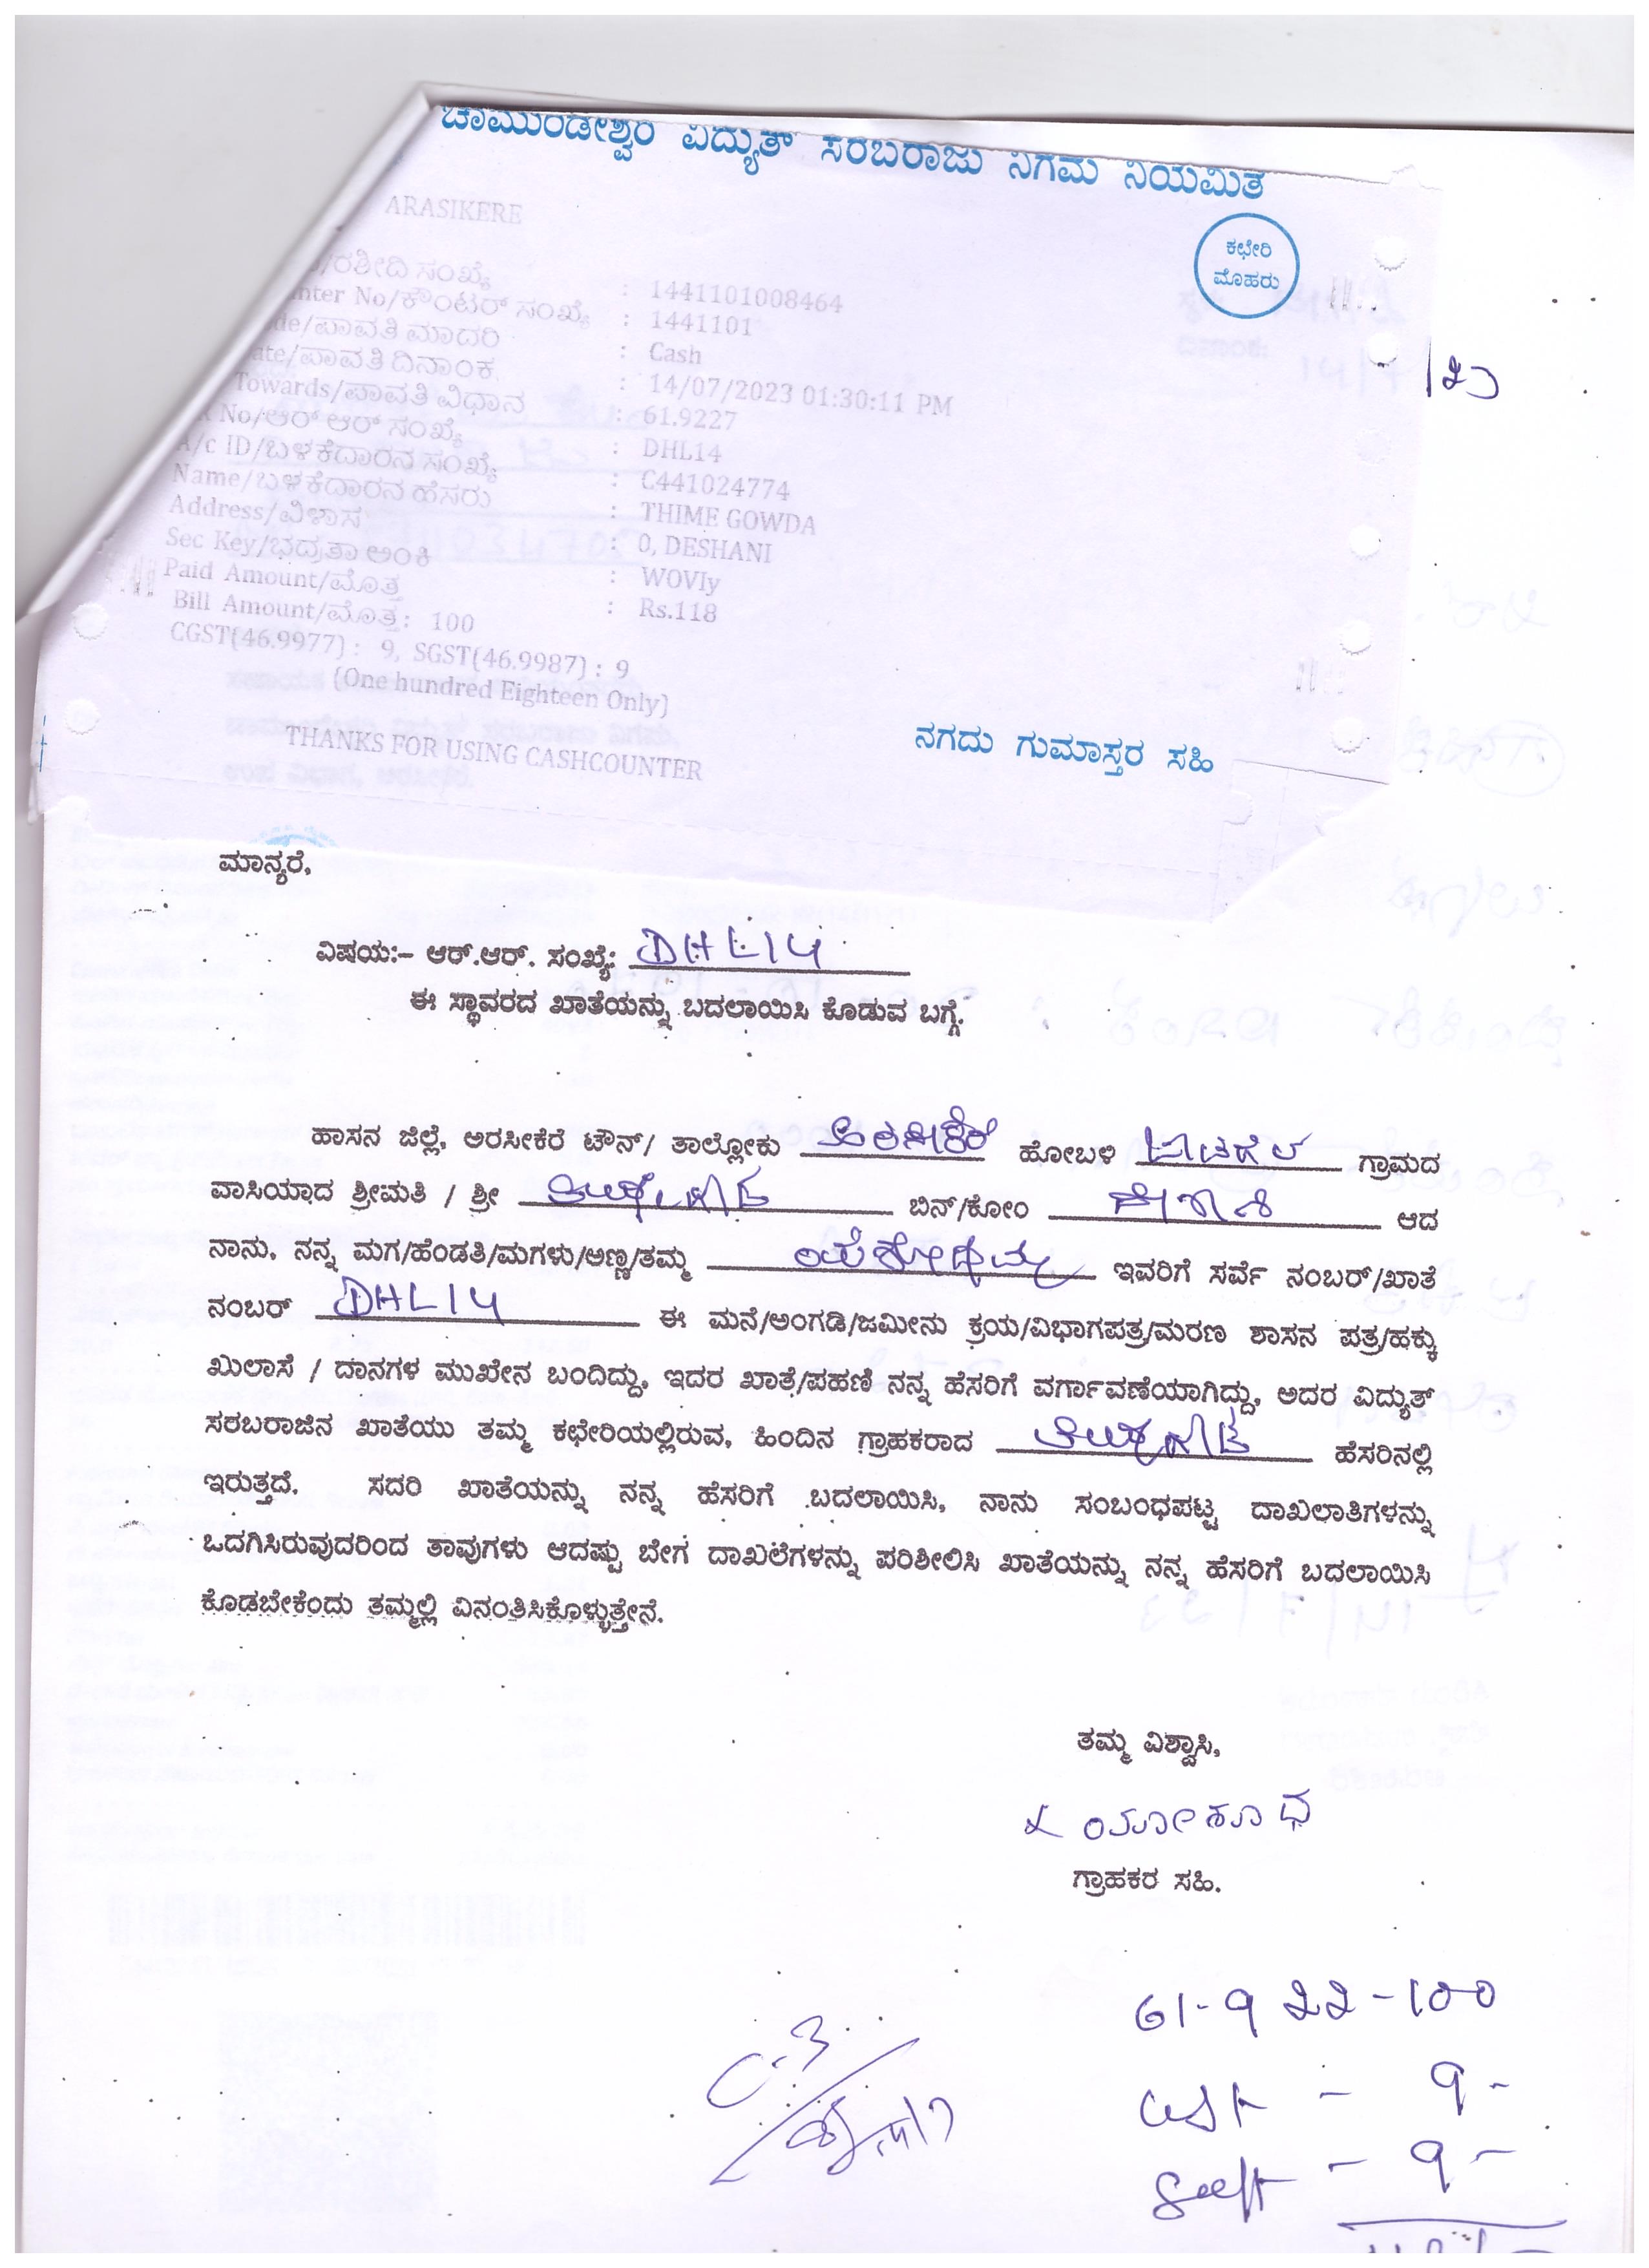 ಚಾಮುಂಡೇಶ್ವರಿ ವಿದ್ಯುತ್ ಸರಬರಾಜು ನಿಗಮ ನಿಯಮಿತ
ARASIKERE
ಕಛೇರಿ
ಮೊಹರು
/ರಶೀದಿ ಸಂಖ್ಯೆ : 1441101008464
nter No/ಕೌಂಟರ್ ಸಂಖ್ಯೆ : 1441101
de/ಪಾವತಿ ಮಾದರಿ : Cash
ate/ಪಾವತಿ ದಿನಾಂಕ : 14/07/2023 01:30:11 PM
Towards/ಪಾವತಿ ವಿಧಾನ : 61.9227
No/ಆರ್ ಆರ್ ಸಂಖ್ಯೆ : DHL14
A/c ID/ಬಳಕೆದಾರನ ಸಂಖ್ಯೆ : C441024774
Name/ಬಳಕೆದಾರನ ಹೆಸರು : THIME GOWDA
Address/ವಿಳಾಸ : 0, DESHANI
Sec Key/ಭದ್ರತಾ ಅಂಕಿ : WOVIy
Paid Amount/ಮೊತ್ತ : Rs.118
Bill Amount/ಮೊತ್ತ: 100
CGST(46.9977) : 9, SGST(46.9987) : 9
(One hundred Eighteen Only)
THANKS FOR USING CASHCOUNTER
ನಗದು ಗುಮಾಸ್ತರ ಸಹಿ
ಮಾನ್ಯರೆ,
ವಿಷಯ:- ಆರ್.ಆರ್. ಸಂಖ್ಯೆ: DHL14
ಈ ಸ್ಥಾವರದ ಖಾತೆಯನ್ನು ಬದಲಾಯಿಸಿ ಕೊಡುವ ಬಗ್ಗೆ.
ಹಾಸನ ಜಿಲ್ಲೆ, ಅರಸೀಕೆರೆ ಟೌನ್/ ತಾಲ್ಲೋಕು ಹೋಬಳಿ ಗ್ರಾಮದ
ವಾಸಿಯಾದ ಶ್ರೀಮತಿ / ಶ್ರೀ ಬಿನ್/ಕೋಂ ಆದ
ನಾನು, ನನ್ನ ಮಗ/ಹೆಂಡತಿ/ಮಗಳು/ಅಣ್ಣ/ತಮ್ಮ ಇವರಿಗೆ ಸರ್ವೆ ನಂಬರ್/ಖಾತೆ
ನಂಬರ್ DHL14 ಈ ಮನೆ/ಅಂಗಡಿ/ಜಮೀನು ಕ್ರಯ/ವಿಭಾಗಪತ್ರ/ಮರಣ ಶಾಸನ ಪತ್ರ/ಹಕ್ಕು
ಖುಲಾಸೆ / ದಾನಗಳ ಮುಖೇನ ಬಂದಿದ್ದು, ಇದರ ಖಾತೆ/ಪಹಣಿ ನನ್ನ ಹೆಸರಿಗೆ ವರ್ಗಾವಣೆಯಾಗಿದ್ದು, ಅದರ ವಿದ್ಯುತ್
ಸರಬರಾಜಿನ ಖಾತೆಯು ತಮ್ಮ ಕಛೇರಿಯಲ್ಲಿರುವ, ಹಿಂದಿನ ಗ್ರಾಹಕರಾದ ಹೆಸರಿನಲ್ಲಿ
ಇರುತ್ತದೆ. ಸದರಿ ಖಾತೆಯನ್ನು ನನ್ನ ಹೆಸರಿಗೆ ಬದಲಾಯಿಸಿ, ನಾನು ಸಂಬಂಧಪಟ್ಟ ದಾಖಲಾತಿಗಳನ್ನು
ಒದಗಿಸಿರುವುದರಿಂದ ತಾವುಗಳು ಆದಷ್ಟು ಬೇಗ ದಾಖಲೆಗಳನ್ನು ಪರಿಶೀಲಿಸಿ ಖಾತೆಯನ್ನು ನನ್ನ ಹೆಸರಿಗೆ ಬದಲಾಯಿಸಿ
ಕೊಡಬೇಕೆಂದು ತಮ್ಮಲ್ಲಿ ವಿನಂತಿಸಿಕೊಳ್ಳುತ್ತೇನೆ.
ತಮ್ಮ ವಿಶ್ವಾಸಿ,
ಗ್ರಾಹಕರ ಸಹಿ.
61-922-100
9-
9-